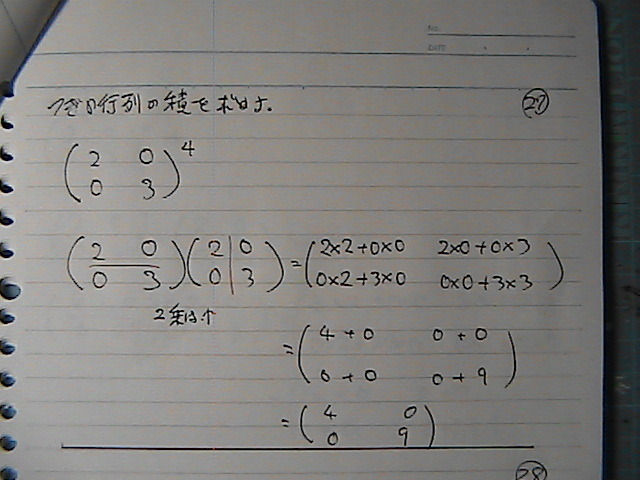 No.
DATE
つぎの行列の積を求めよ。 ㉗
(2 0
0 3)^4
(2 0
0 3)(2 0
0 3) = (2×2+0×0 2×0+0×3
0×2+3×0 0×0+3×3)
= (4+0 0+0
0+0 0+9)
= (4 0
0 9)
㉘